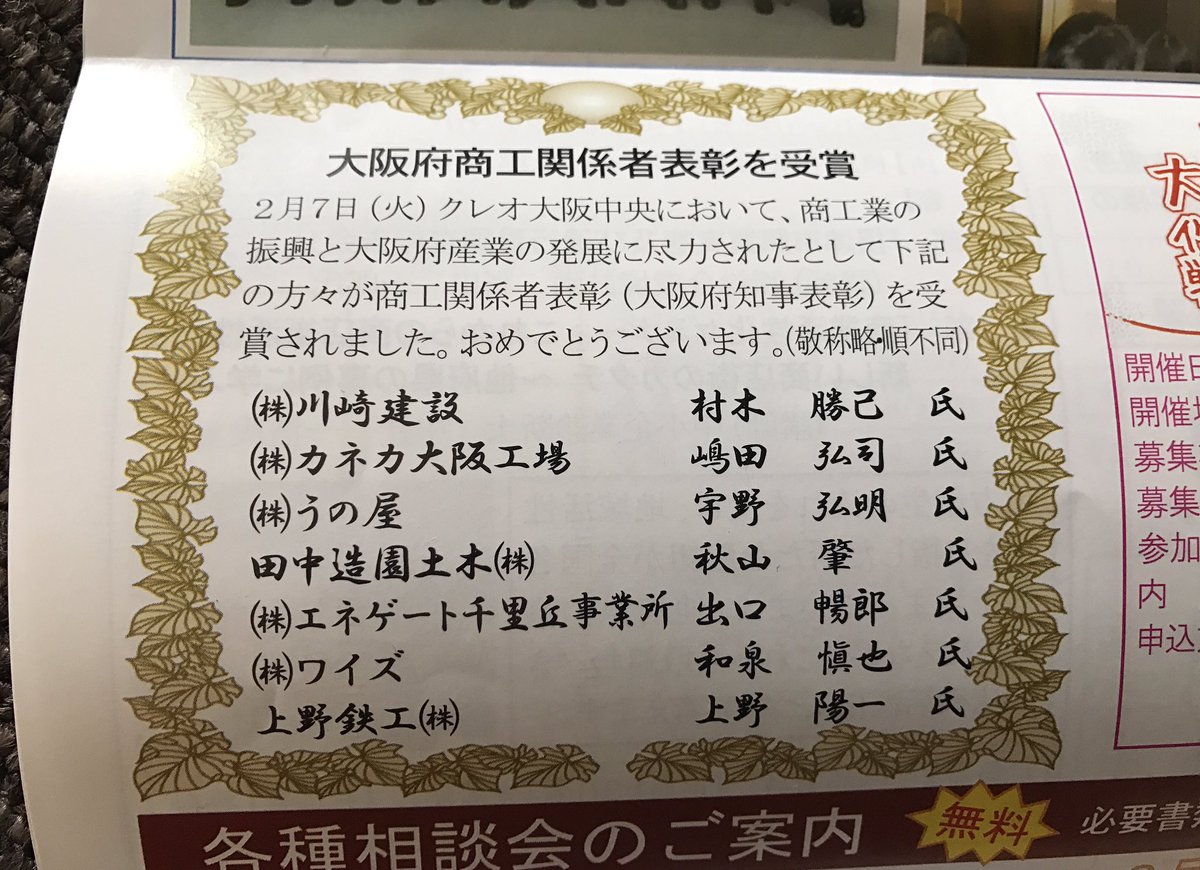 大阪府商工関係者表彰を受賞
2月7日(火)クレオ大阪中央において、商工業の
振興と大阪府産業の発展に尽力されたとして下記
の方々が商工関係者表彰(大阪府知事表彰)を受
賞されました。おめでとうございます。(敬称略・順不同)
㈱川崎建設 村木 勝己 氏
㈱カネカ大阪工場 嶋田 弘司 氏
㈱うの屋 宇野 弘明 氏
田中造園土木㈱ 秋山 肇 氏
㈱エネゲート千里丘事業所 出口 暢郎 氏
㈱ワイズ 和泉 愼也 氏
上野鉄工㈱ 上野 陽一 氏
各種相談会のご案内
無料
必要書
開催
開催
募集
募集
参加
内
申込